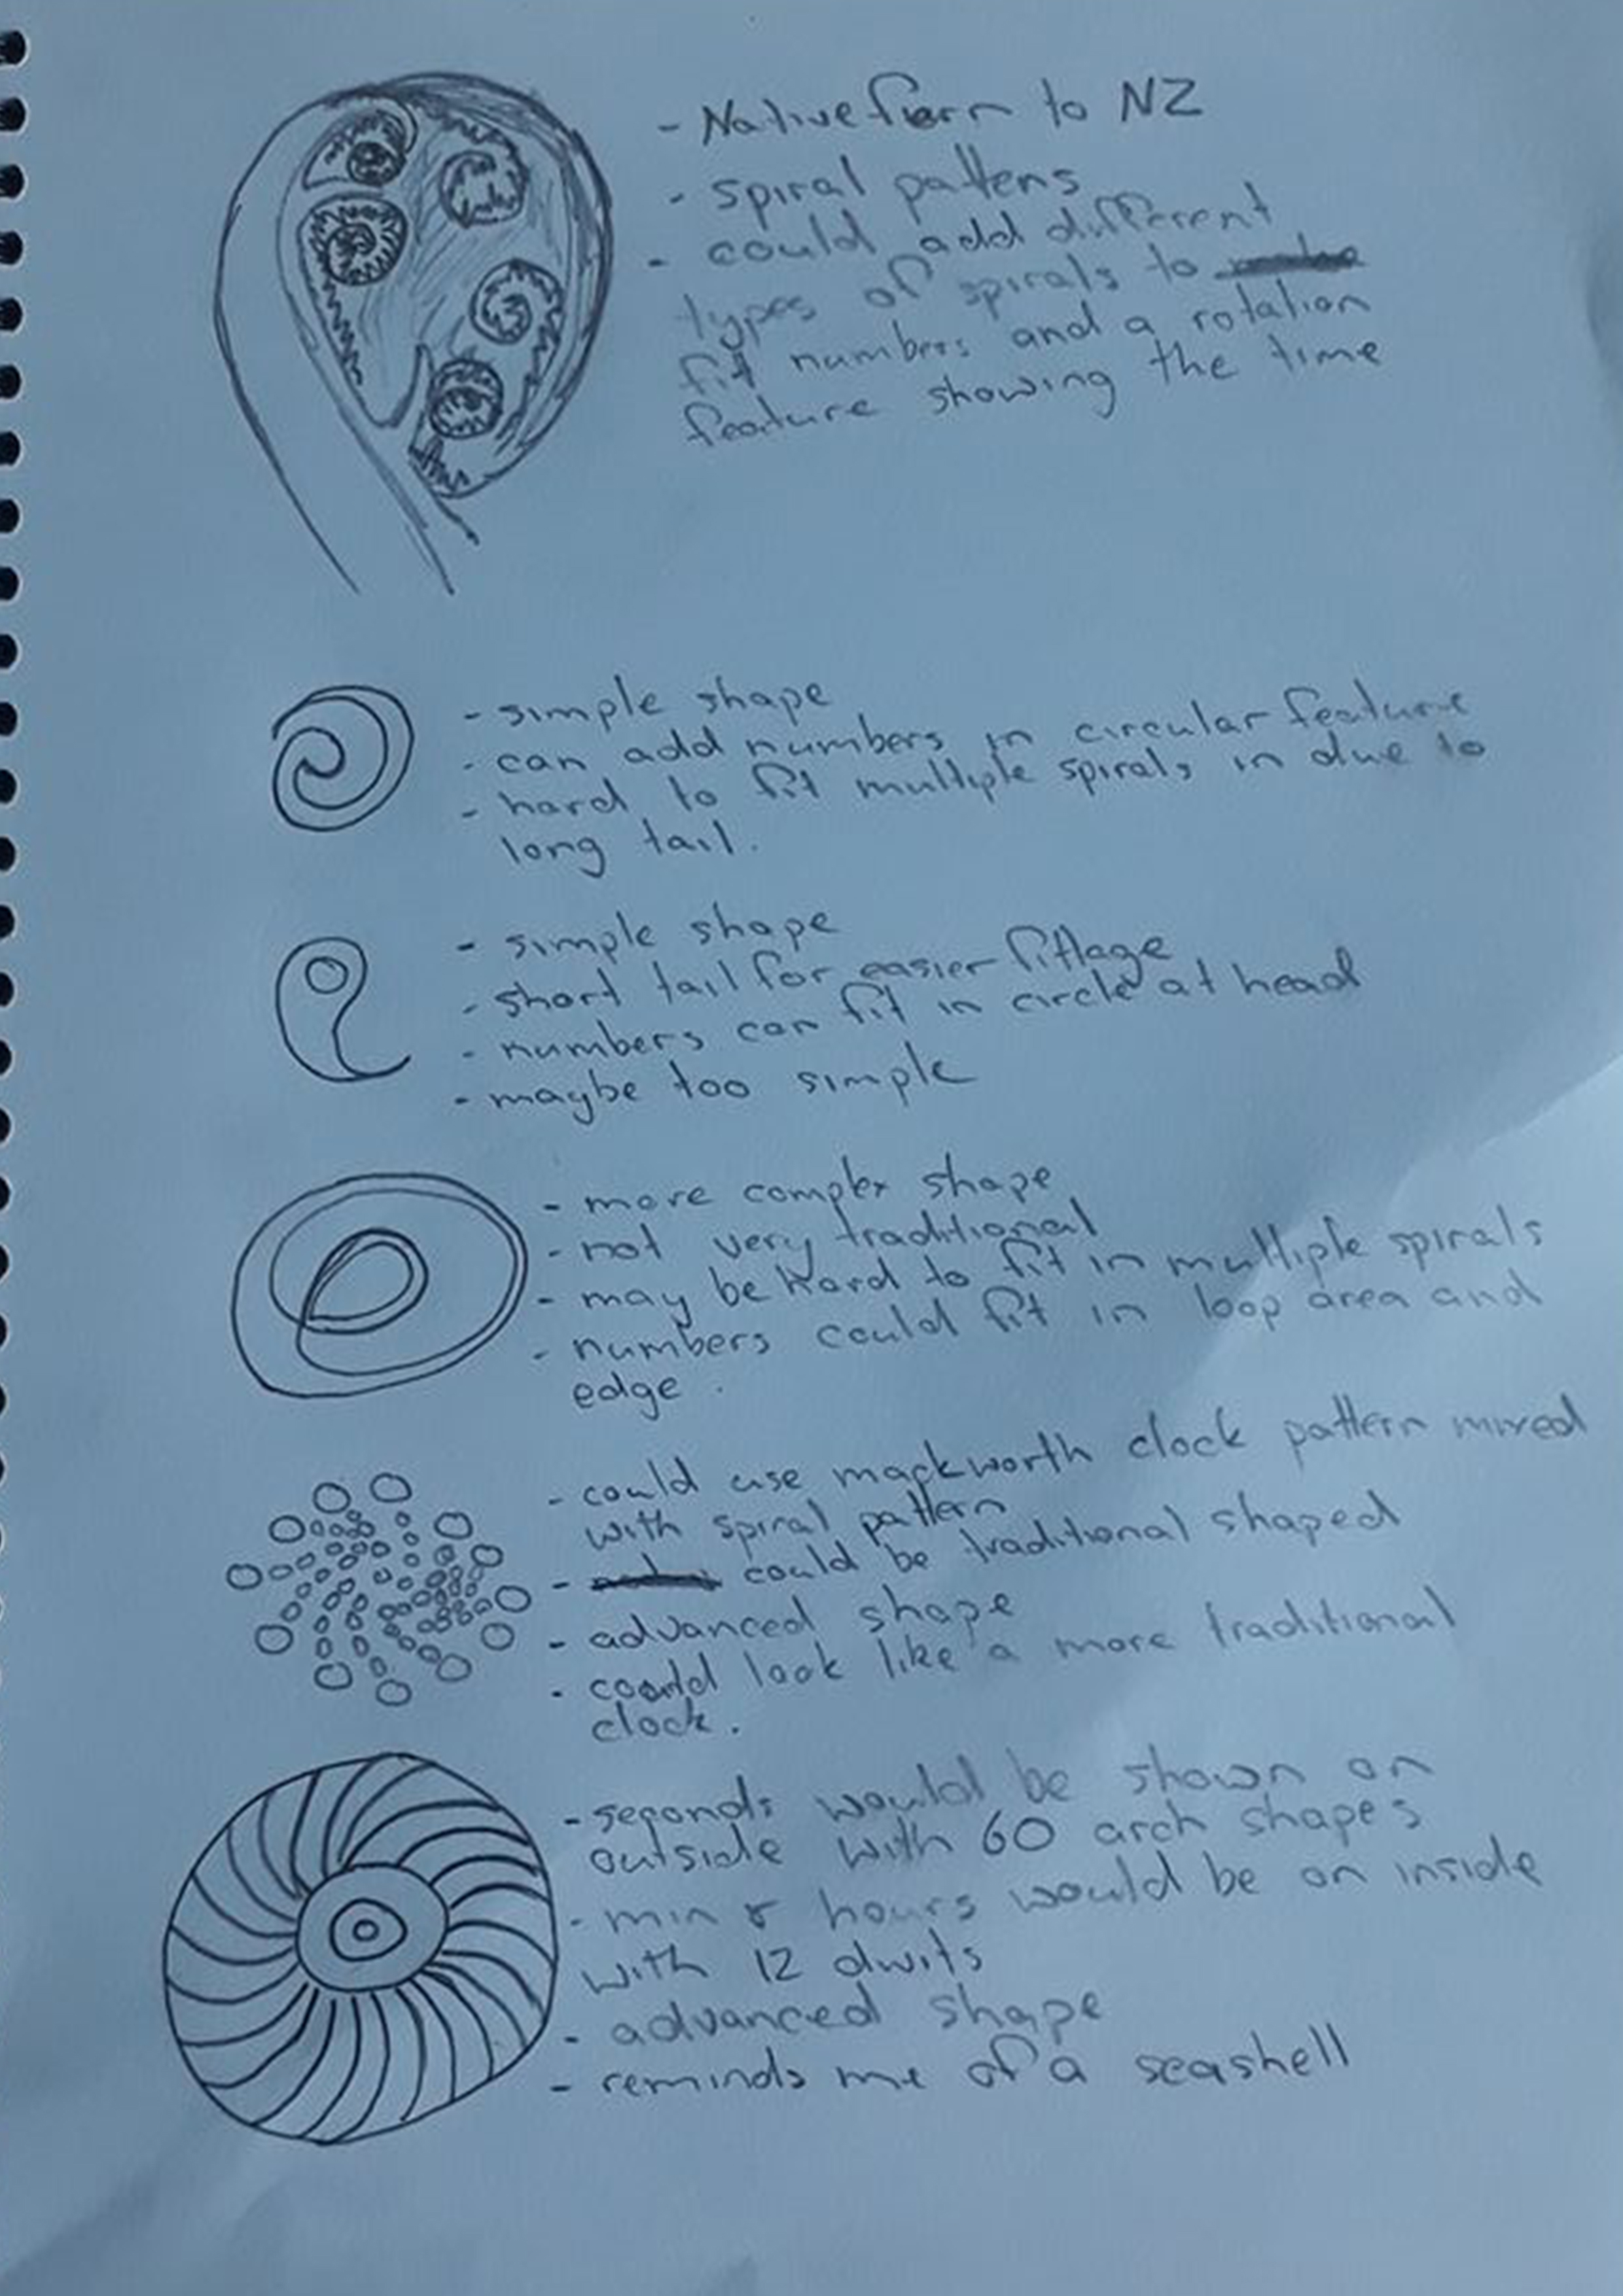 - Native fern to NZ
- spiral pattens
- could add different
types of spirals to
fit numbers and a rotation
feature showing the time
- simple shape
- can add numbers in circular feature
- hard to fit multiple spirals in due to
long tail.
- simple shape
- short tail for easier fittage
- numbers can fit in circle at head
- maybe too simple
- more complex shape
- not very traditional
- may be hard to fit in multiple spirals
- numbers could fit in loop area and
edge.
- could use mackworth clock pattern mixed
with spiral pattern
- could be traditional shaped
- advanced shape
- could look like a more traditional
clock.
- seconds would be shown on
outside with 60 arch shapes
- min & hours would be on inside
with 12 dwits
- advanced shape
- reminds me of a seashell